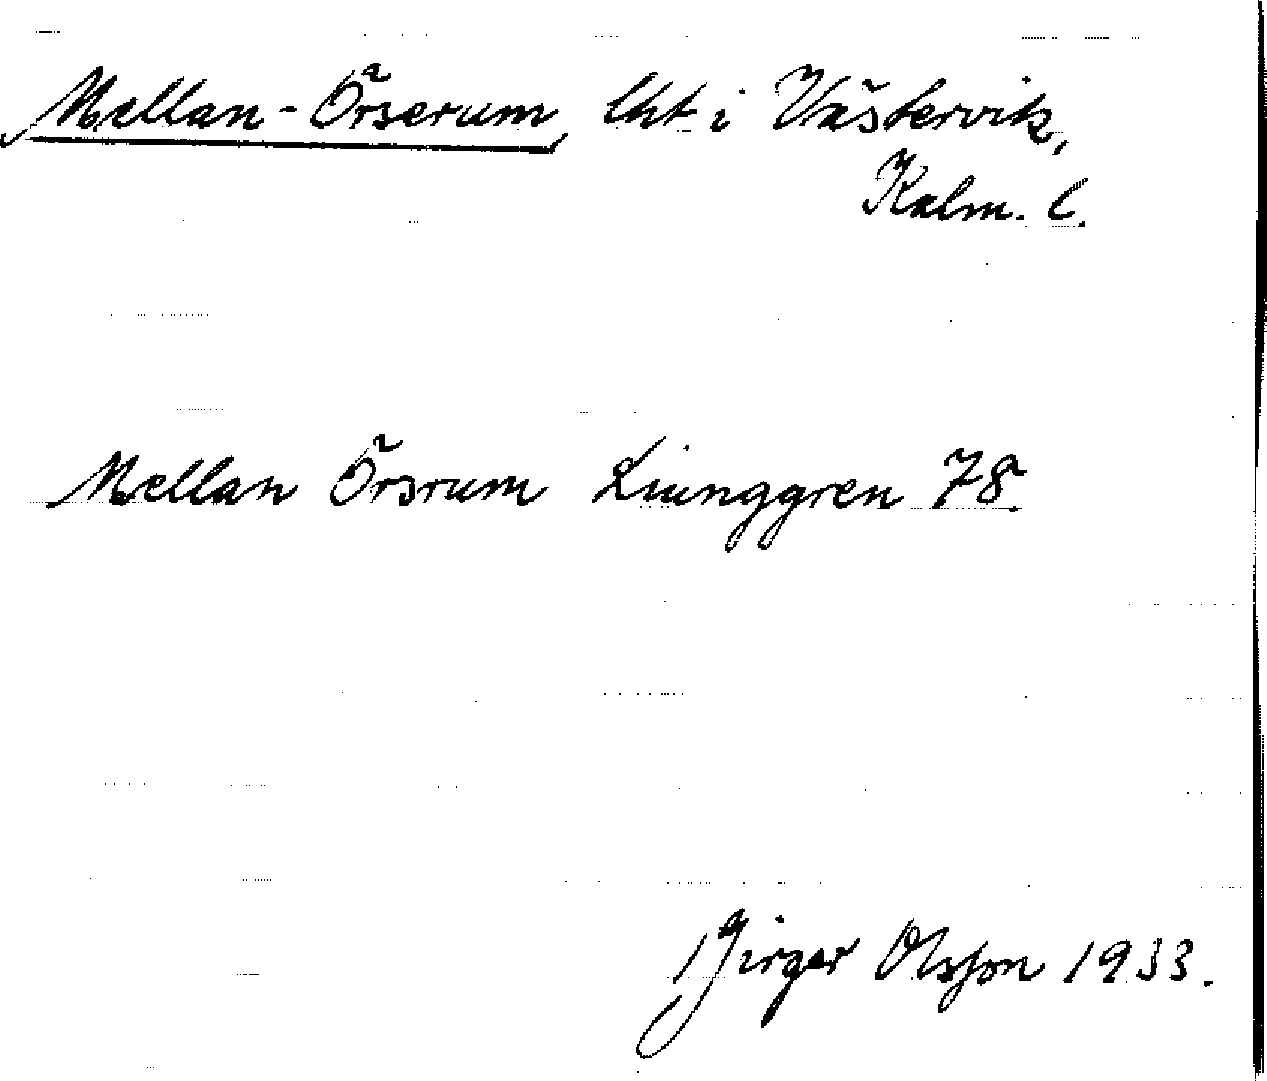 Mellan-Örserum, lht i Västervik,
Kalm. l.
Mellan Örsrum Liunggren 78.
Birger Olsson 1933.